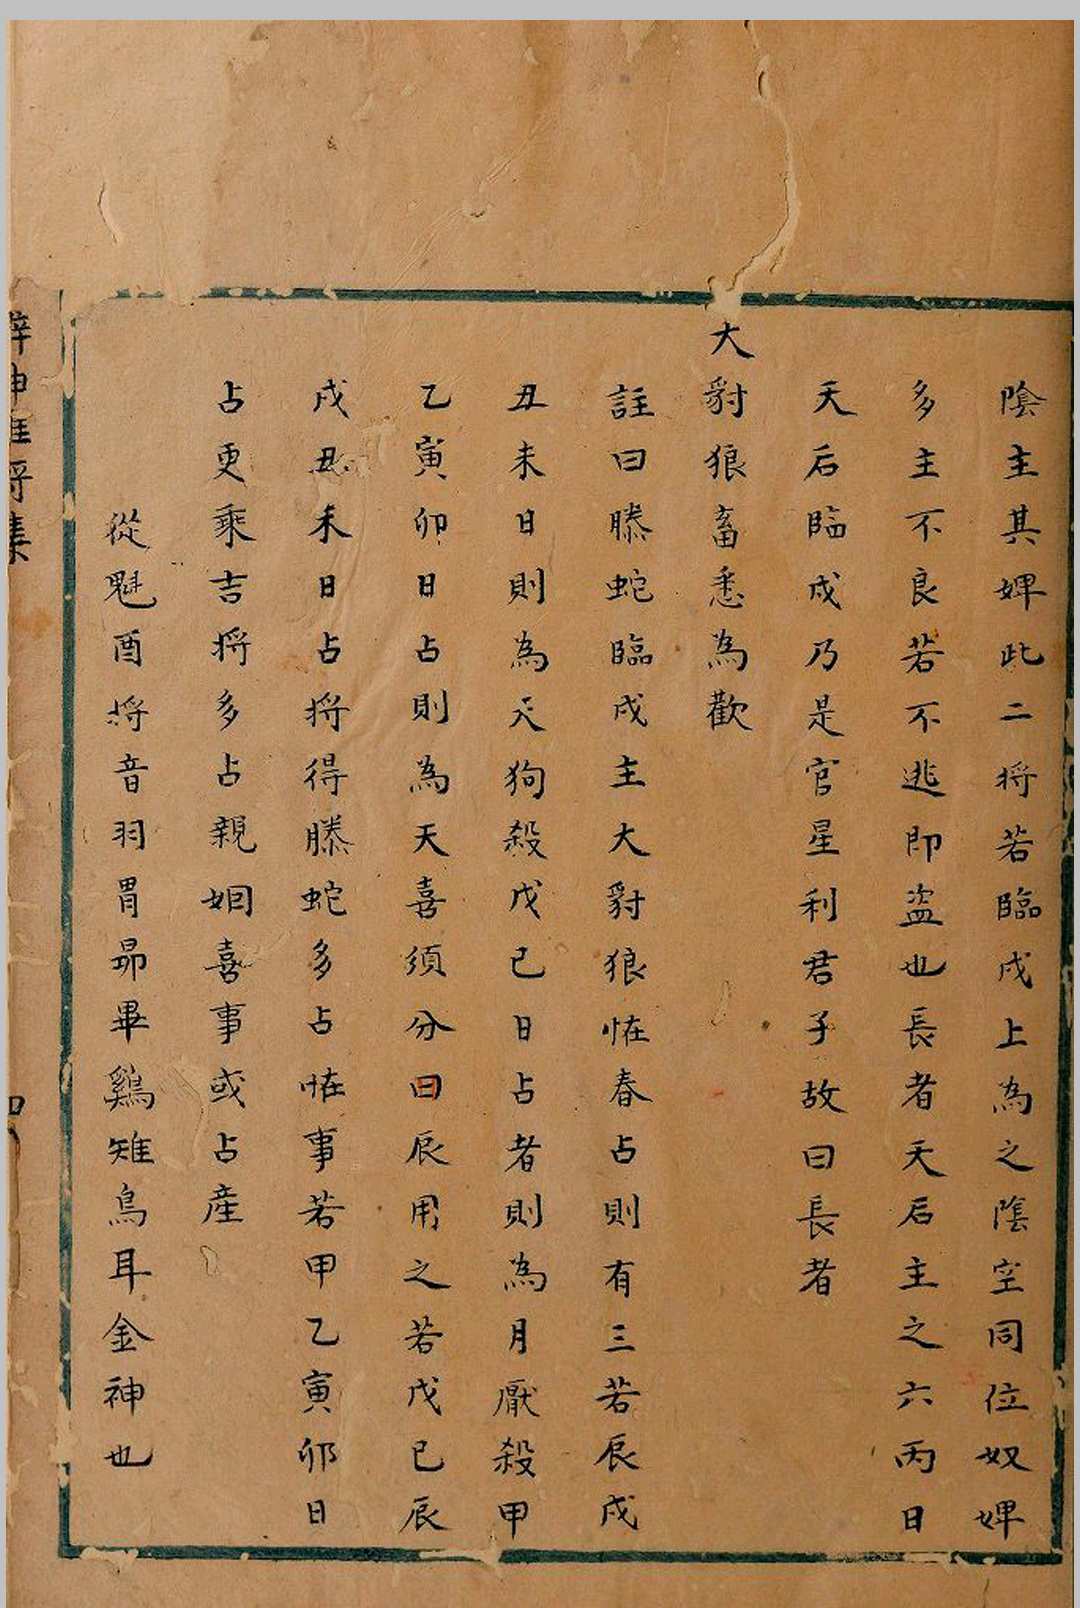 陰主其婢此二将若臨戌上為之陰空同位奴婢
多主不良若不逃即盗也長者天后主之六丙日
天后臨戌乃是官星利君子故曰長者
大豺狼畜悉為歡
註曰螣蛇臨戌主大豺狼恠春占則有三若辰戌
丑未日則為天狗殺戊己日占者則為月厭殺甲
乙寅卯日占則為天喜須分曰辰用之若戊己辰
戌丑未日占将得螣蛇多占恠事若甲乙寅卯日
占更乘吉将多占親姻喜事或占産
從魁酉将音羽胃昴畢鷄雉鳥耳金神也
神 将集